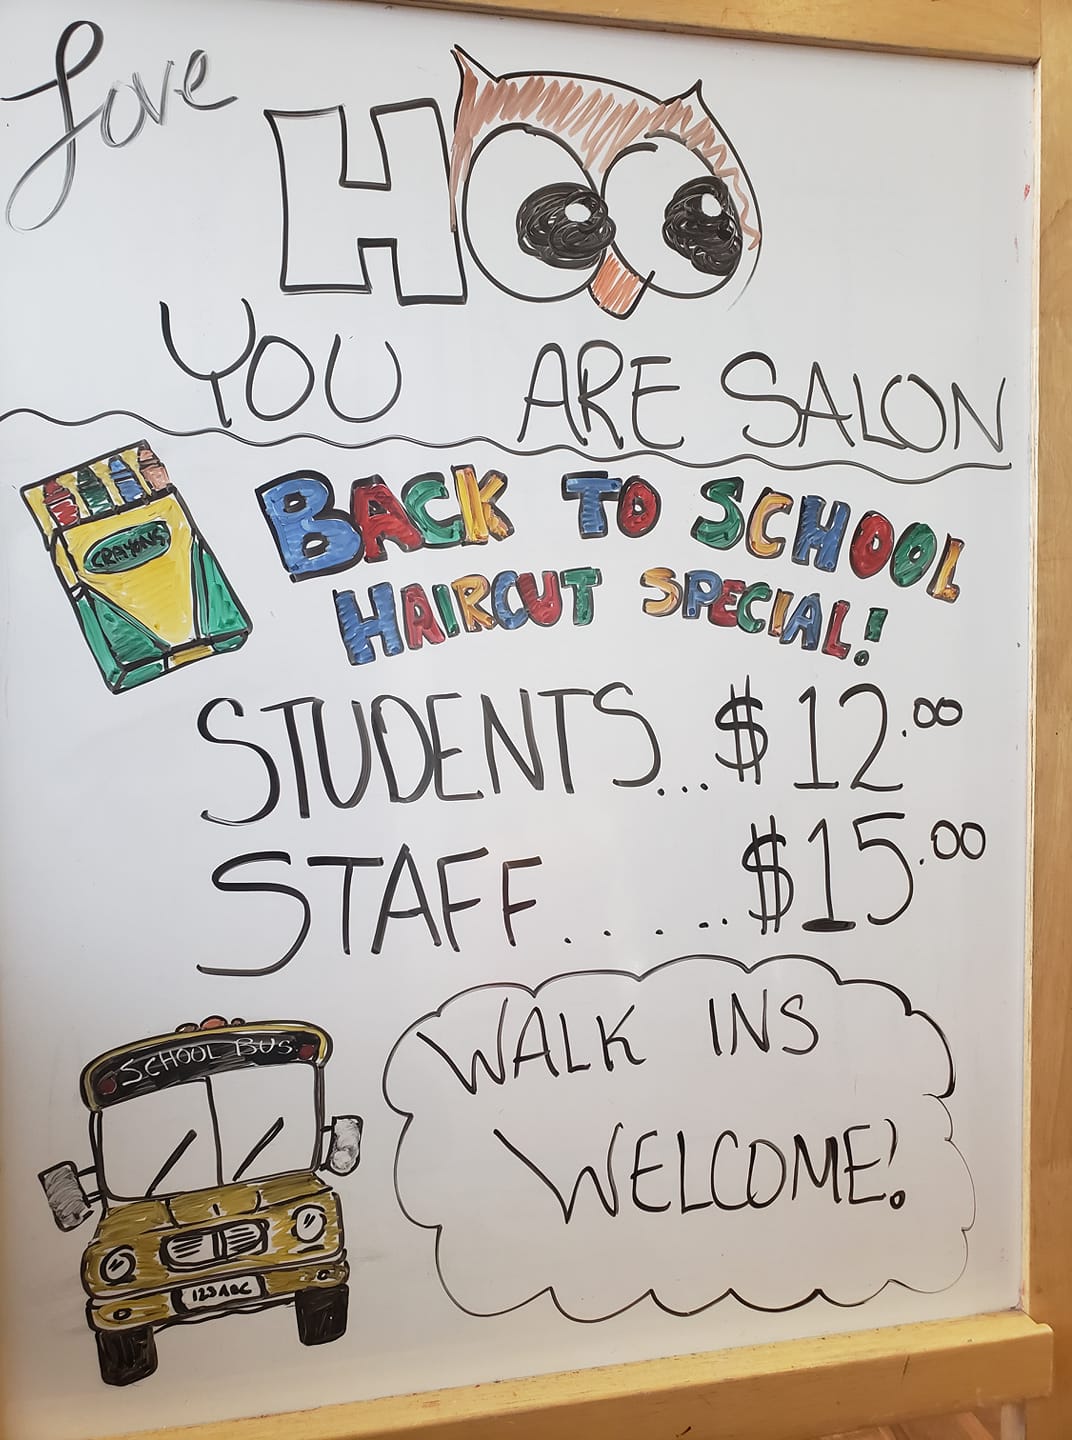 Love
HOO
YOU ARE SALON
CRAYONS
BACK TO SCHOOL
HAIRCUT SPECIAL!
STUDENTS...$12.00
STAFF......$15.00
SCHOOL BUS
WALK INS
WELCOME!
123 ABC